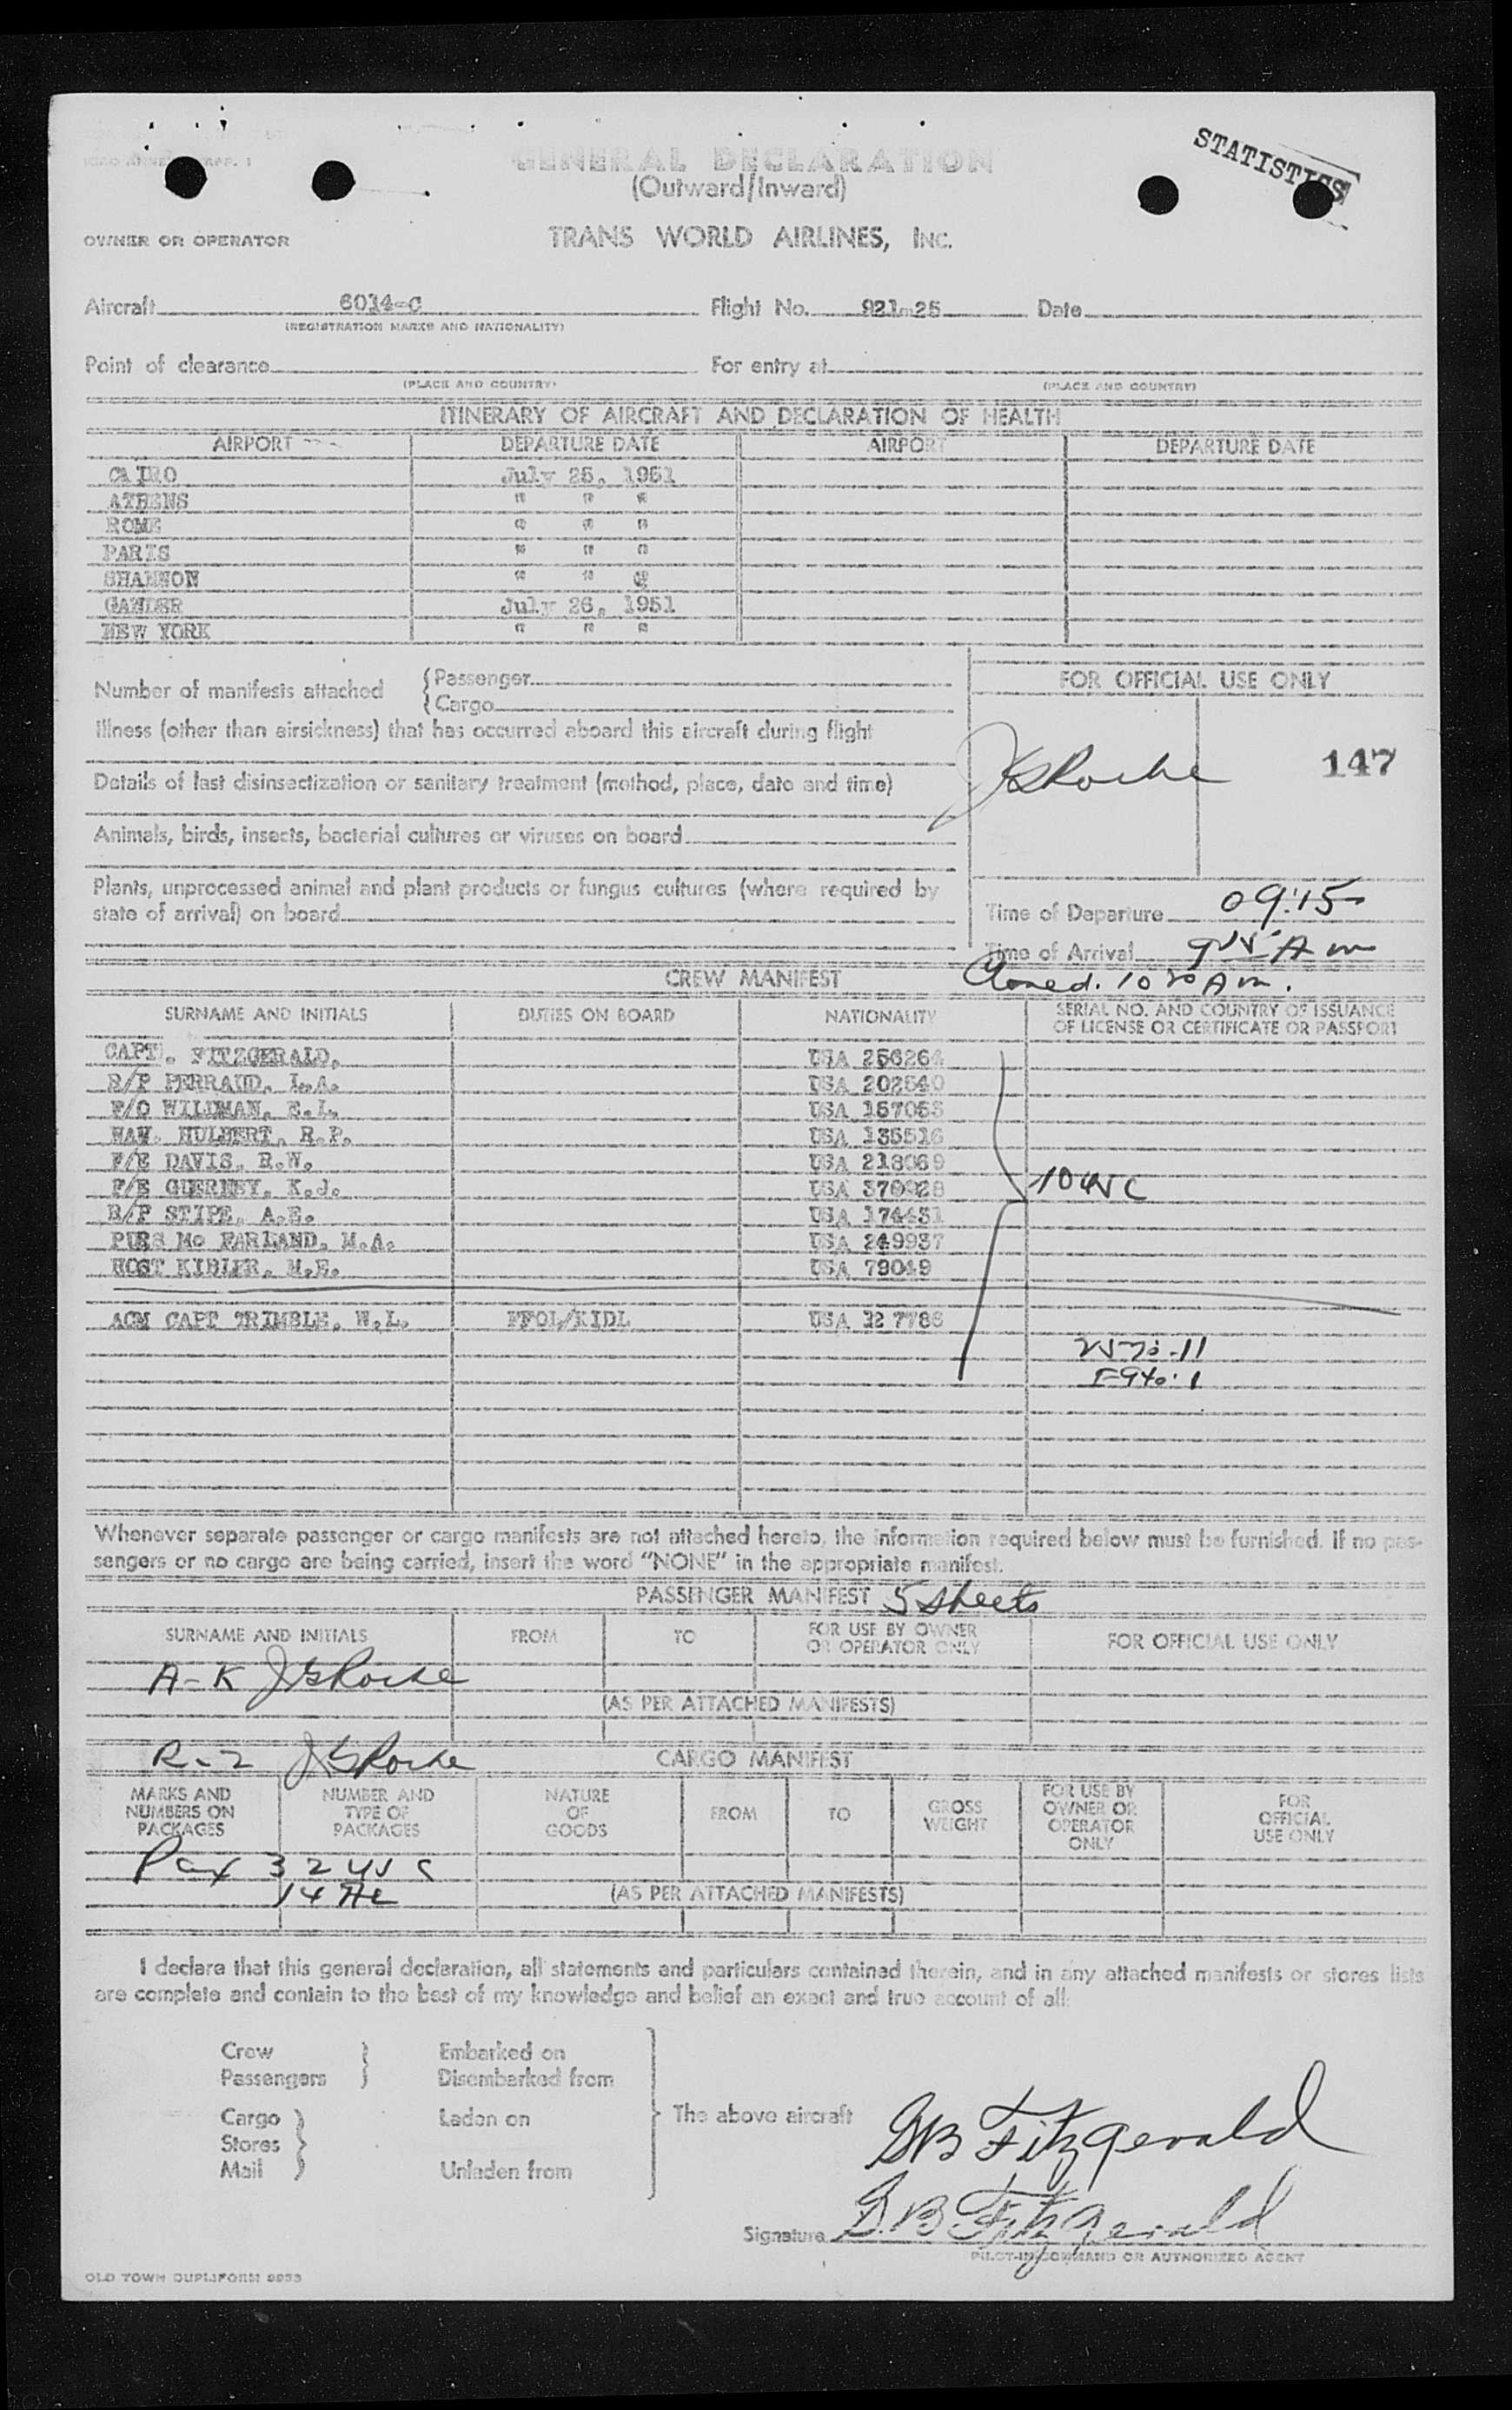 STATISTICS
GENERAL DECLARATION
(Outward/Inward)
OWNER OR OPERATOR TRANS WORLD AIRLINES, INC.
Aircraft 6014-C Flight No. 921-25 Date
(REGISTRATION MARKS AND NATIONALITY)
Point of clearance For entry at
(PLACE AND COUNTRY) (PLACE AND COUNTRY)
ITINERARY OF AIRCRAFT AND DECLARATION OF HEALTH
AIRPORT DEPARTURE DATE AIRPORT DEPARTURE DATE
CAIRO July 25, 1951
ATHENS " " "
ROME " " "
PARIS " " "
SHANNON " " "
GANDER July 26, 1951
NEW YORK " " "
Number of manifests attached { Passenger
{ Cargo
FOR OFFICIAL USE ONLY
Illness (other than airsickness) that has occurred aboard this aircraft during flight
JGRoche 147
Details of last disinsectization or sanitary treatment (method, place, date and time)
Animals, birds, insects, bacterial cultures or viruses on board
Plants, unprocessed animal and plant products or fungus cultures (where required by
state of arrival) on board
Time of Departure 09:15
Time of Arrival 915 A m
CREW MANIFEST
SURNAME AND INITIALS DUTIES ON BOARD NATIONALITY SERIAL NO. AND COUNTRY OF ISSUANCE
OF LICENSE OR CERTIFICATE OR PASSPORT
CAPT. FITZGERALD, USA 256264
R/P PERRAUD, L.A. USA 202640
F/O WILDMAN, E.L. USA 157053
NAV. HULBERT, R.P. USA 135516
F/E DAVIS, R.W. USA 218069
F/E GUERNEY, K.J. USA 370928
R/P STIPE, A.E. USA 174431
PURS Mc FARLAND, M.A. USA 249937
HOST KIBLER, M.E. USA 79049
10 USC
ACM CAPT TRIMBLE, W.L. FFOL/KIDL USA 127786
Whenever separate passenger or cargo manifests are not attached hereto, the information required below must be furnished. If no pas-
sengers or no cargo are being carried, insert the word "NONE" in the appropriate manifest.
PASSENGER MANIFEST 5 sheets
SURNAME AND INITIALS FROM TO FOR USE BY OWNER
OR OPERATOR ONLY FOR OFFICIAL USE ONLY
A-K JGRoche
(AS PER ATTACHED MANIFESTS)
R-2 JGRoche CARGO MANIFEST
MARKS AND
NUMBERS ON
PACKAGES
NUMBER AND
TYPE OF
PACKAGES
NATURE
OF
GOODS
FROM
TO
GROSS
WEIGHT
FOR USE BY
OWNER OR
OPERATOR
ONLY
FOR
OFFICIAL
USE ONLY
Pax 32 USC
14
(AS PER ATTACHED MANIFESTS)
I declare that this general declaration, all statements and particulars contained therein, and in any attached manifests or stores lists
are complete and contain to the best of my knowledge and belief an exact and true account of all:
Crew } Embarked on
Passengers } Disembarked from
Cargo } Laden on
Stores }
Mail } Unladen from
The above aircraft
GB Fitzgerald
Signature G.B. Fitzgerald
PILOT-IN-COMMAND OR AUTHORIZED AGENT
OLD TOWN DUPLIFORM 9933